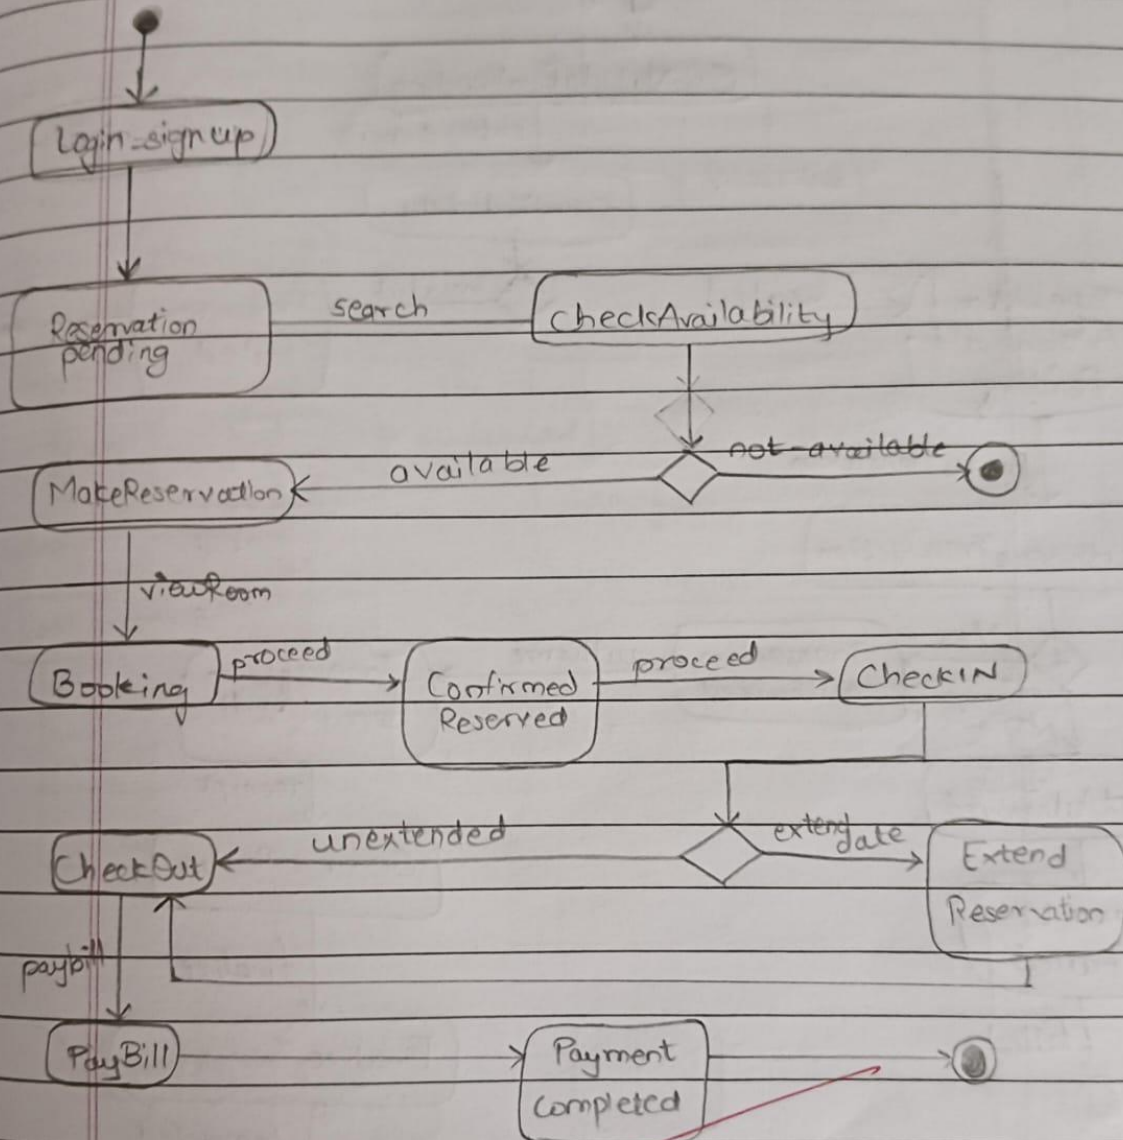 Login-signup
Reservation
pending
search
checkAvailability
not-available
available
MakeReservation
viewRoom
Booking
proceed
Confirmed
Reserved
proceed
CheckIN
unextended
extend
date
CheckOut
Extend
Reservation
paybill
PayBill
Payment
completed